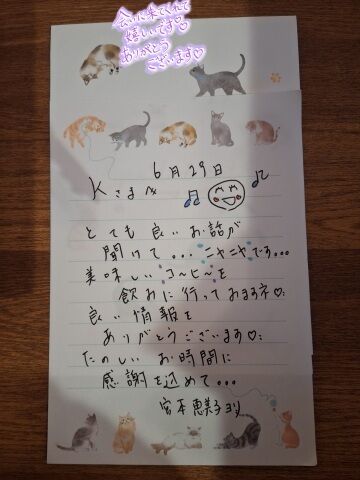 会いに来てくれて
嬉しいです♡
ありがとう
ございます♡
6月29日
Kさまへ
とても良いお話が
聞けて...ニヤニヤです...
美味しいコーヒーを
飲みに行っておりますネ♡
良い情報を
ありがとうございます♡
たのしいお時間に
感謝を込めて...
宮本恵美子ヨリ